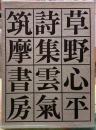 草野心平
詩集雲気
筑摩書房